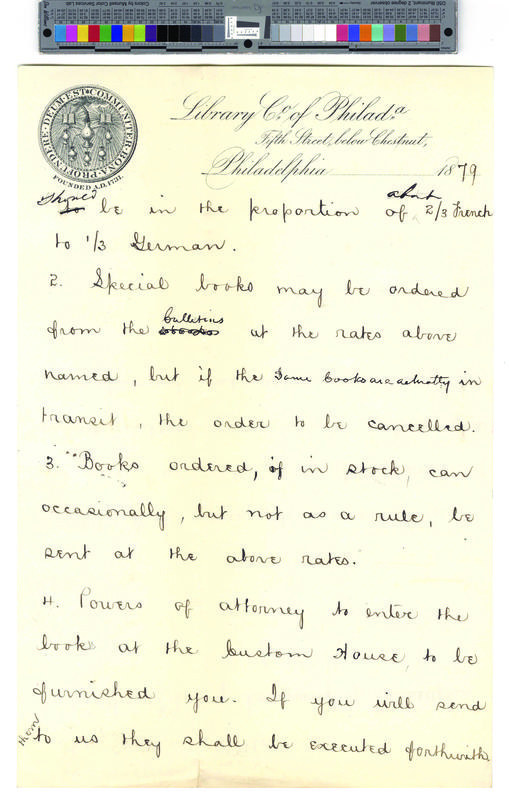 COMMUNITER BONA PROFUNDERE DEUM EST
FOUNDED A.D. 1731.
Library Co. of Philada.
Fifth Street, below Chestnut,
Philadelphia 1879
be in the proportion about of 2/3 French
to 1/3 German.
2. Special books may be ordered
from the bulletins at the rates above
named, but if the same books are actually in
transit, the order to be cancelled.
3. Books ordered, if in stock, can
occasionally, but not as a rule, be
sent at the above rates.
4. Powers of attorney to enter the
books at the Custom House, to be
furnished you. If you will send
them to us they shall be executed forthwith.